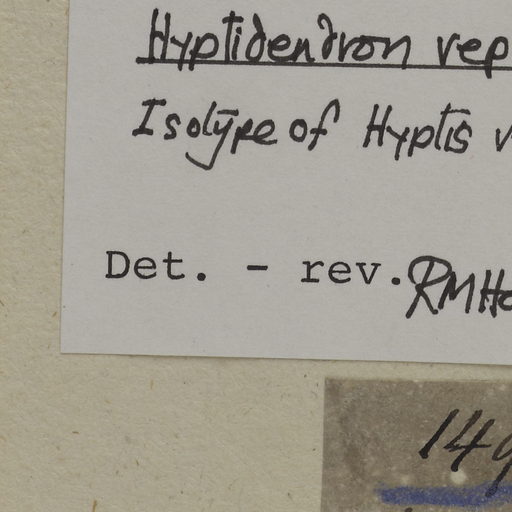 Hyptidendron rep
Isotype of Hyptis v
Det. - rev. RMHa
149